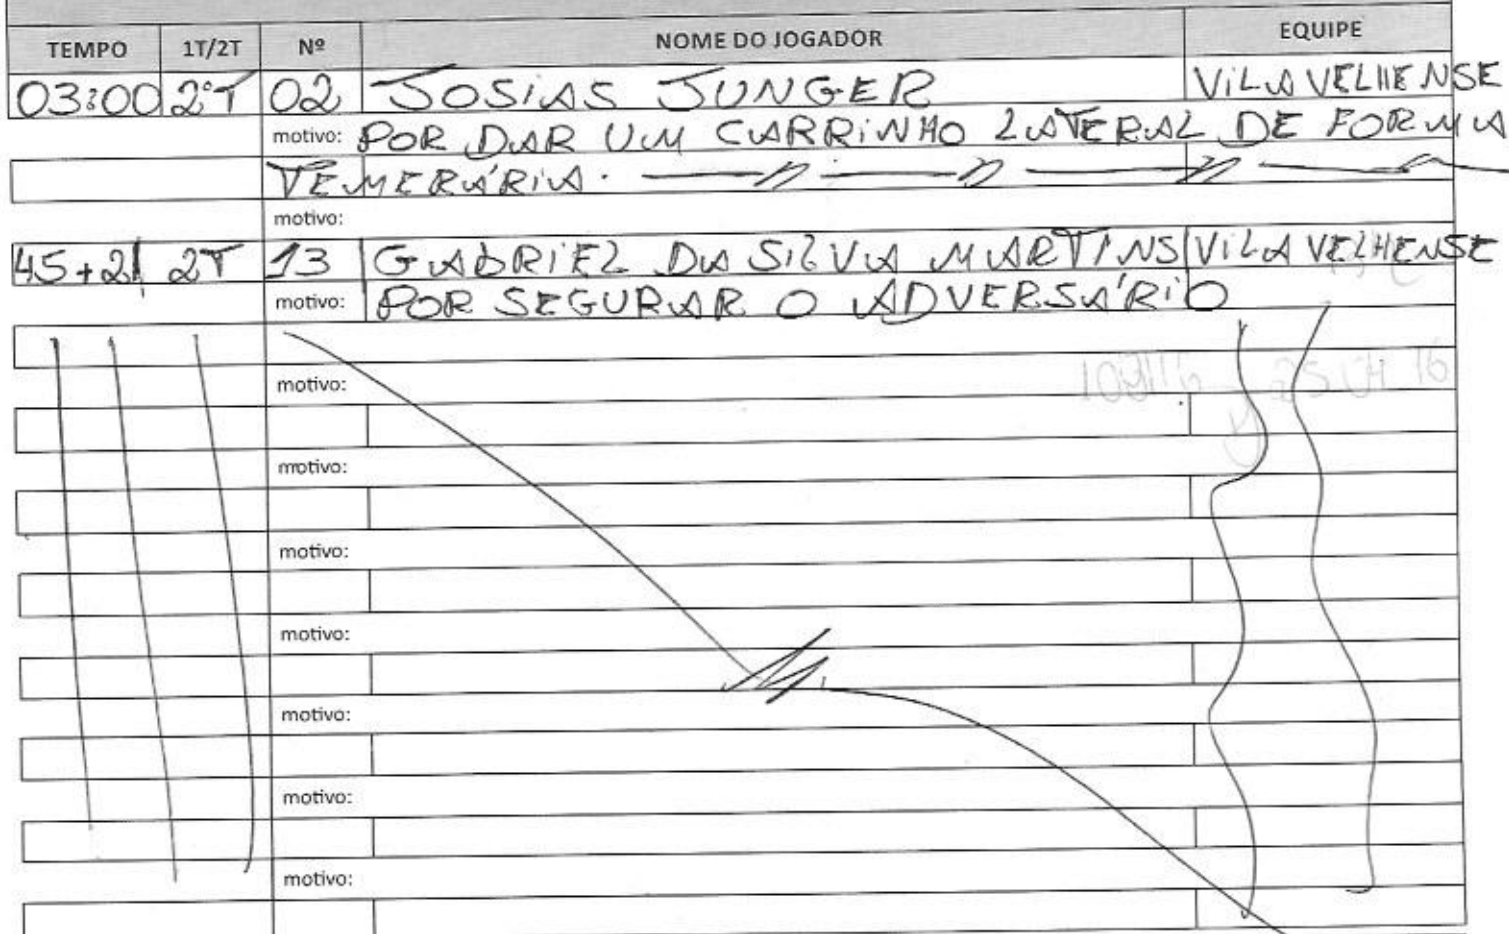 TEMPO 1T/2T Nº NOME DO JOGADOR EQUIPE
03:00 2ºT 02 JOSIAS JUNGER VILAVELHENSE
motivo: POR DAR UM CARRINHO LATERAL DE FORMA
TEMERÁRIA.
motivo:
45+2 2T 13 GABRIEL DA SILVA MARTINS VILAVELHENSE
motivo: POR SEGURAR O ADVERSÁRIO
motivo:
motivo:
motivo:
motivo:
motivo:
motivo:
motivo: